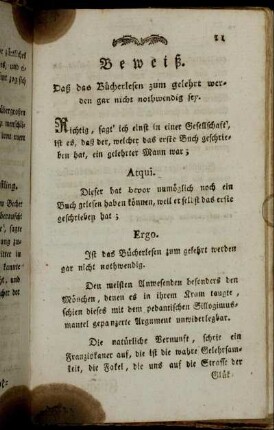 11
Beweiß.
Daß das Bücherlesen zum gelehrt wer-
den gar nicht nothwendig sey.
Richtig, sagt' ich einst in einer Gesellschaft,
ist es, daß der, welcher das erste Buch geschrie-
ben hat, ein gelehrter Mann war;
Atqui.
Dieser hat bevor unmöglich noch ein
Buch gelesen haben können, weil er selbst das erste
geschrieben hat;
Ergo.
Ist das Bücherlesen zum gelehrt werden
gar nicht nothwendig.
Den meisten Anwesenden besonders den
Mönchen, denen es in ihrem Kram taugte,
schien dieses mit dem pedantischen Sillogismus-
mantel gepanzerte Argument unwiderlegbar.
Die natürliche Vernunft, schrie ein
Franziskaner auf, die ist die wahre Gelehrsam-
keit, die Fakel, die uns auf die Strasse der
Glük-